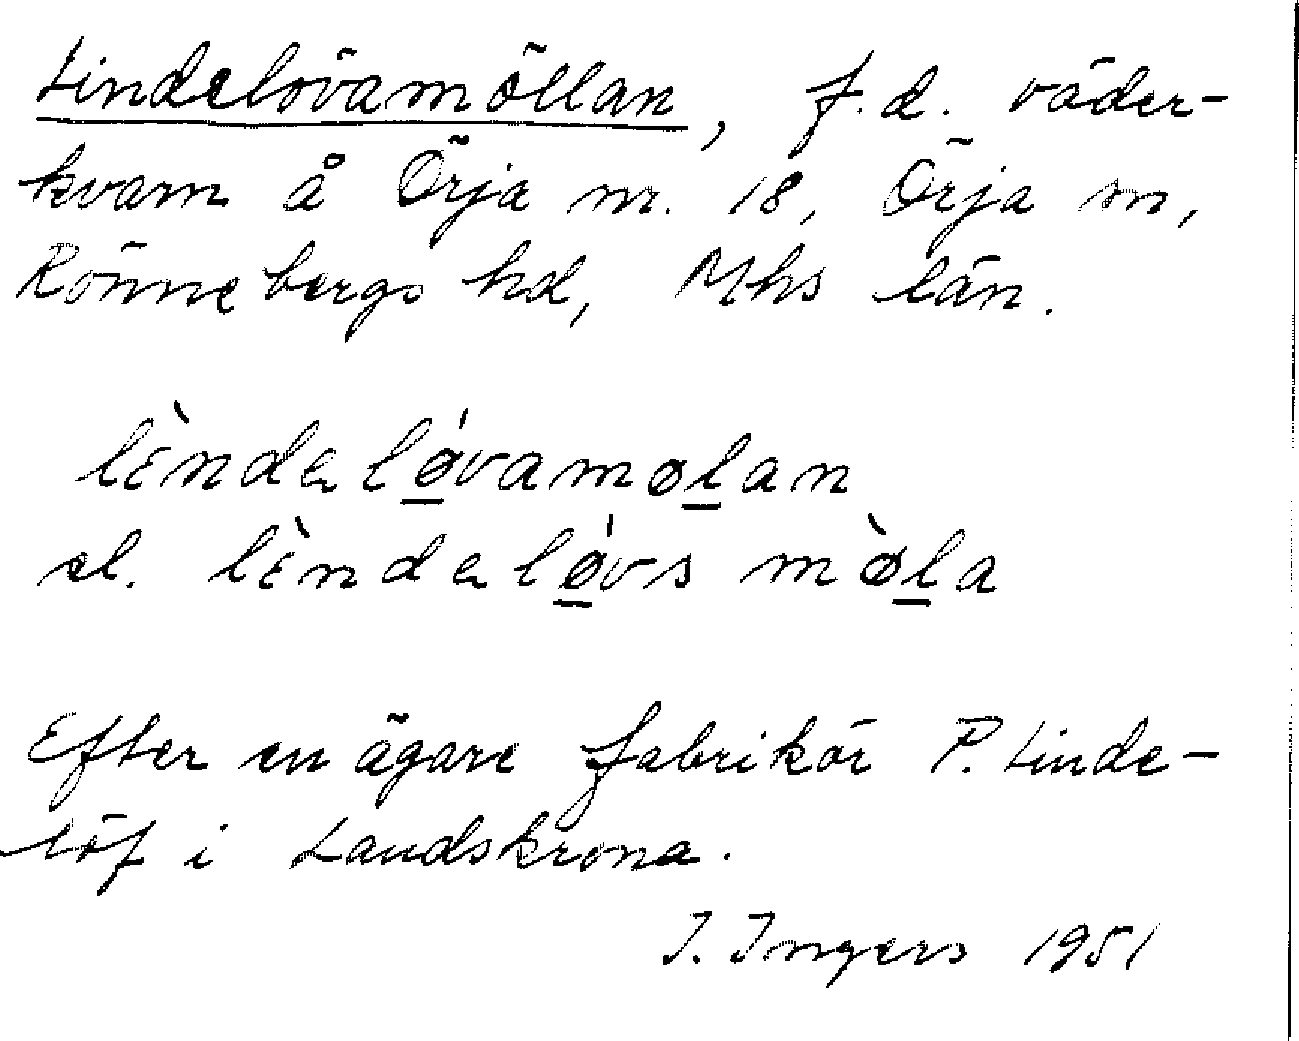 Lindelövamöllan, f.d. väder-
kvarn å Örja nr. 18, Örja sn,
Rönnebergs hd, Mhs län.
lɛ̀ndəlǿ̱vamøḻan
el. lɛ̀ndəlǿ̱vs mø̀ḻa
Efter en ägare fabrikör P. Linde-
löf i Landskrona.
I. Ingers 1951